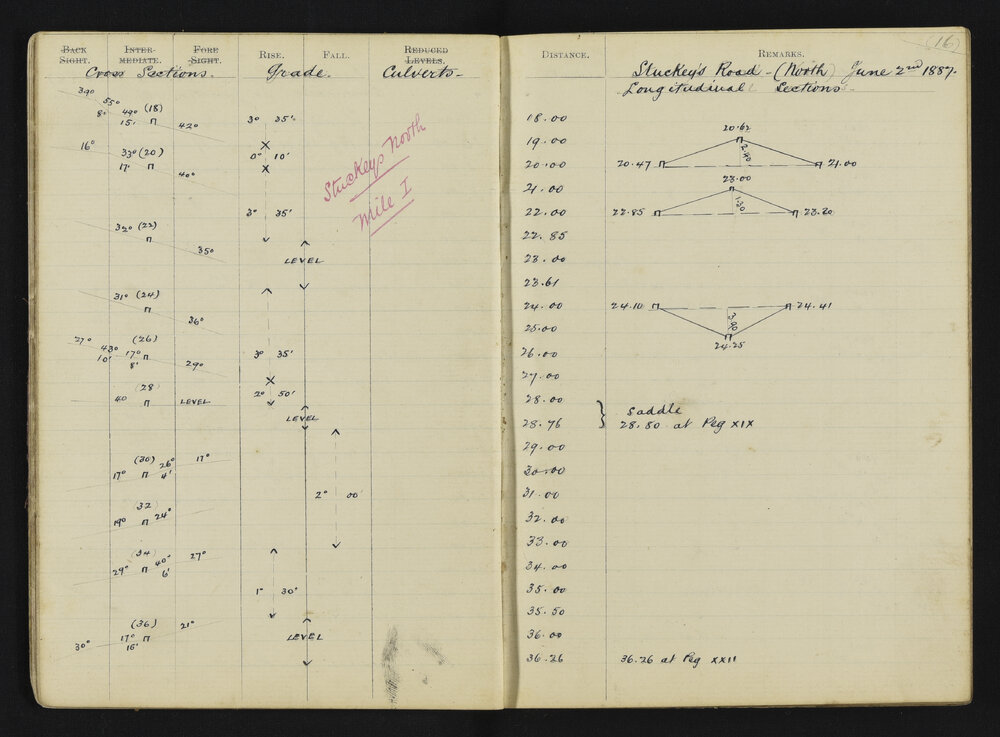 BACK SIGHT. INTER-MEDIATE. FORE SIGHT. RISE. FALL. REDUCED LEVELS.
Cross Sections. Grade. Culverts.
39°
55°
8' 49° (18)
15' 42° 3° 35'
16° 33° (20) 0° 10'
17' 40°
Stuckeys North
Mile I
3° 35'
32° (22)
35°
LEVEL
31° (24)
36°
27° (26)
43° 17° 3° 35'
10' 8' 29°
(28) 2° 50'
40 LEVEL
LEVEL
(30) 26° 17°
17° 4'
2° 00'
(32)
19° 24°
(34) 40° 27°
29° 6'
1° 30'
(36) 21°
17° LEVEL
30° 15'
(16)
DISTANCE. REMARKS.
Stuckey's Road - (North) June 2nd 1887.
Longitudinal Sections
18.00
19.00 20.62
2.40
20.00 20.47 21.00
21.00 23.00
1.30
22.00 22.85 23.20
22.85
23.00
23.61
24.00 24.10 24.41
3.90
25.00
24.25
26.00
27.00
28.00 Saddle
28.76 28.80 at Peg XIX
29.00
30.00
31.00
32.00
33.00
34.00
35.00
35.50
36.00
36.26 36.26 at Peg XXII